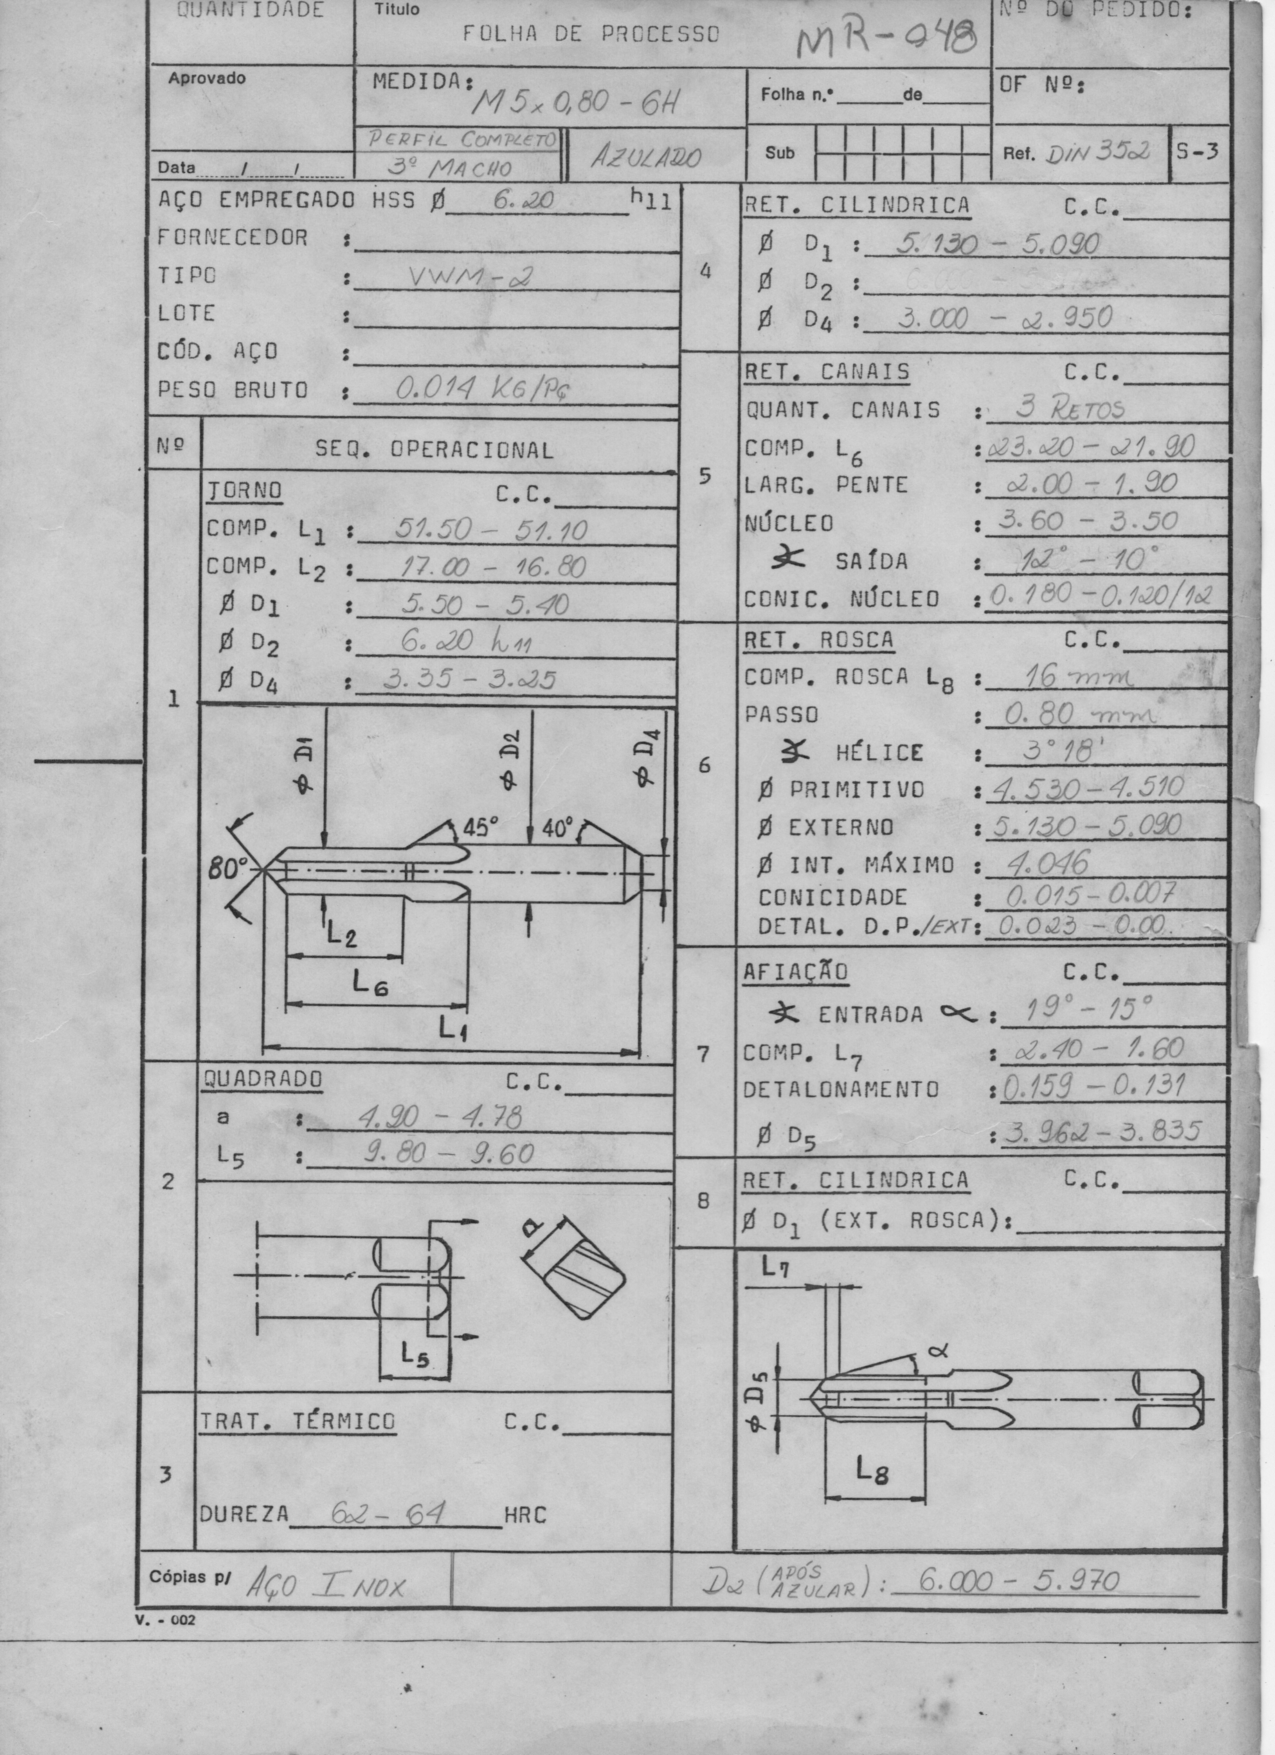 QUANTIDADE
Título
FOLHA DE PROCESSO
MR-048
Nº DO PEDIDO:
Aprovado
MEDIDA:
M5x0,80-6H
Folha n.º ______ de ______
OF Nº:
PERFIL COMPLETO
3º MACHO
AZULADO
Sub
Ref. DIN 352
S-3
Data ....../....../......
AÇO EMPREGADO HSS Ø 6.20 h11
FORNECEDOR :
TIPO : VWM-2
LOTE :
CÓD. AÇO :
PESO BRUTO : 0.014 KG/PÇ
Nº
SEQ. OPERACIONAL
1
TORNO C.C.
COMP. L1 : 51.50 - 51.10
COMP. L2 : 17.00 - 16.80
Ø D1 : 5.50 - 5.40
Ø D2 : 6.20 h11
Ø D4 : 3.35 - 3.25
Ø D1
Ø D2
Ø D4
45°
40°
80°
L2
L6
L1
2
QUADRADO C.C.
a : 4.90 - 4.78
L5 : 9.80 - 9.60
a
L5
3
TRAT. TÉRMICO C.C.
DUREZA 62 - 64 HRC
4
RET. CILINDRICA C.C.
Ø D1 : 5.130 - 5.090
Ø D2 :
Ø D4 : 3.000 - 2.950
5
RET. CANAIS C.C.
QUANT. CANAIS : 3 RETOS
COMP. L6 : 23.20 - 21.90
LARG. PENTE : 2.00 - 1.90
NÚCLEO : 3.60 - 3.50
∡ SAÍDA : 12° - 10°
CONIC. NÚCLEO : 0.180 - 0.120/12
6
RET. ROSCA C.C.
COMP. ROSCA L8 : 16 mm
PASSO : 0.80 mm
∡ HÉLICE : 3° 18'
Ø PRIMITIVO : 4.530 - 4.510
Ø EXTERNO : 5.130 - 5.090
Ø INT. MÁXIMO : 4.046
CONICIDADE : 0.015 - 0.007
DETAL. D.P./EXT: 0.023 - 0.00
7
AFIAÇÃO C.C.
∡ ENTRADA α : 19° - 15°
COMP. L7 : 2.40 - 1.60
DETALONAMENTO : 0.159 - 0.131
Ø D5 : 3.962 - 3.835
8
RET. CILINDRICA C.C.
Ø D1 (EXT. ROSCA):
L7
α
Ø D5
L8
Cópias p/ AÇO INOX
D2 (APÓS AZULAR) : 6.000 - 5.970
V. - 002